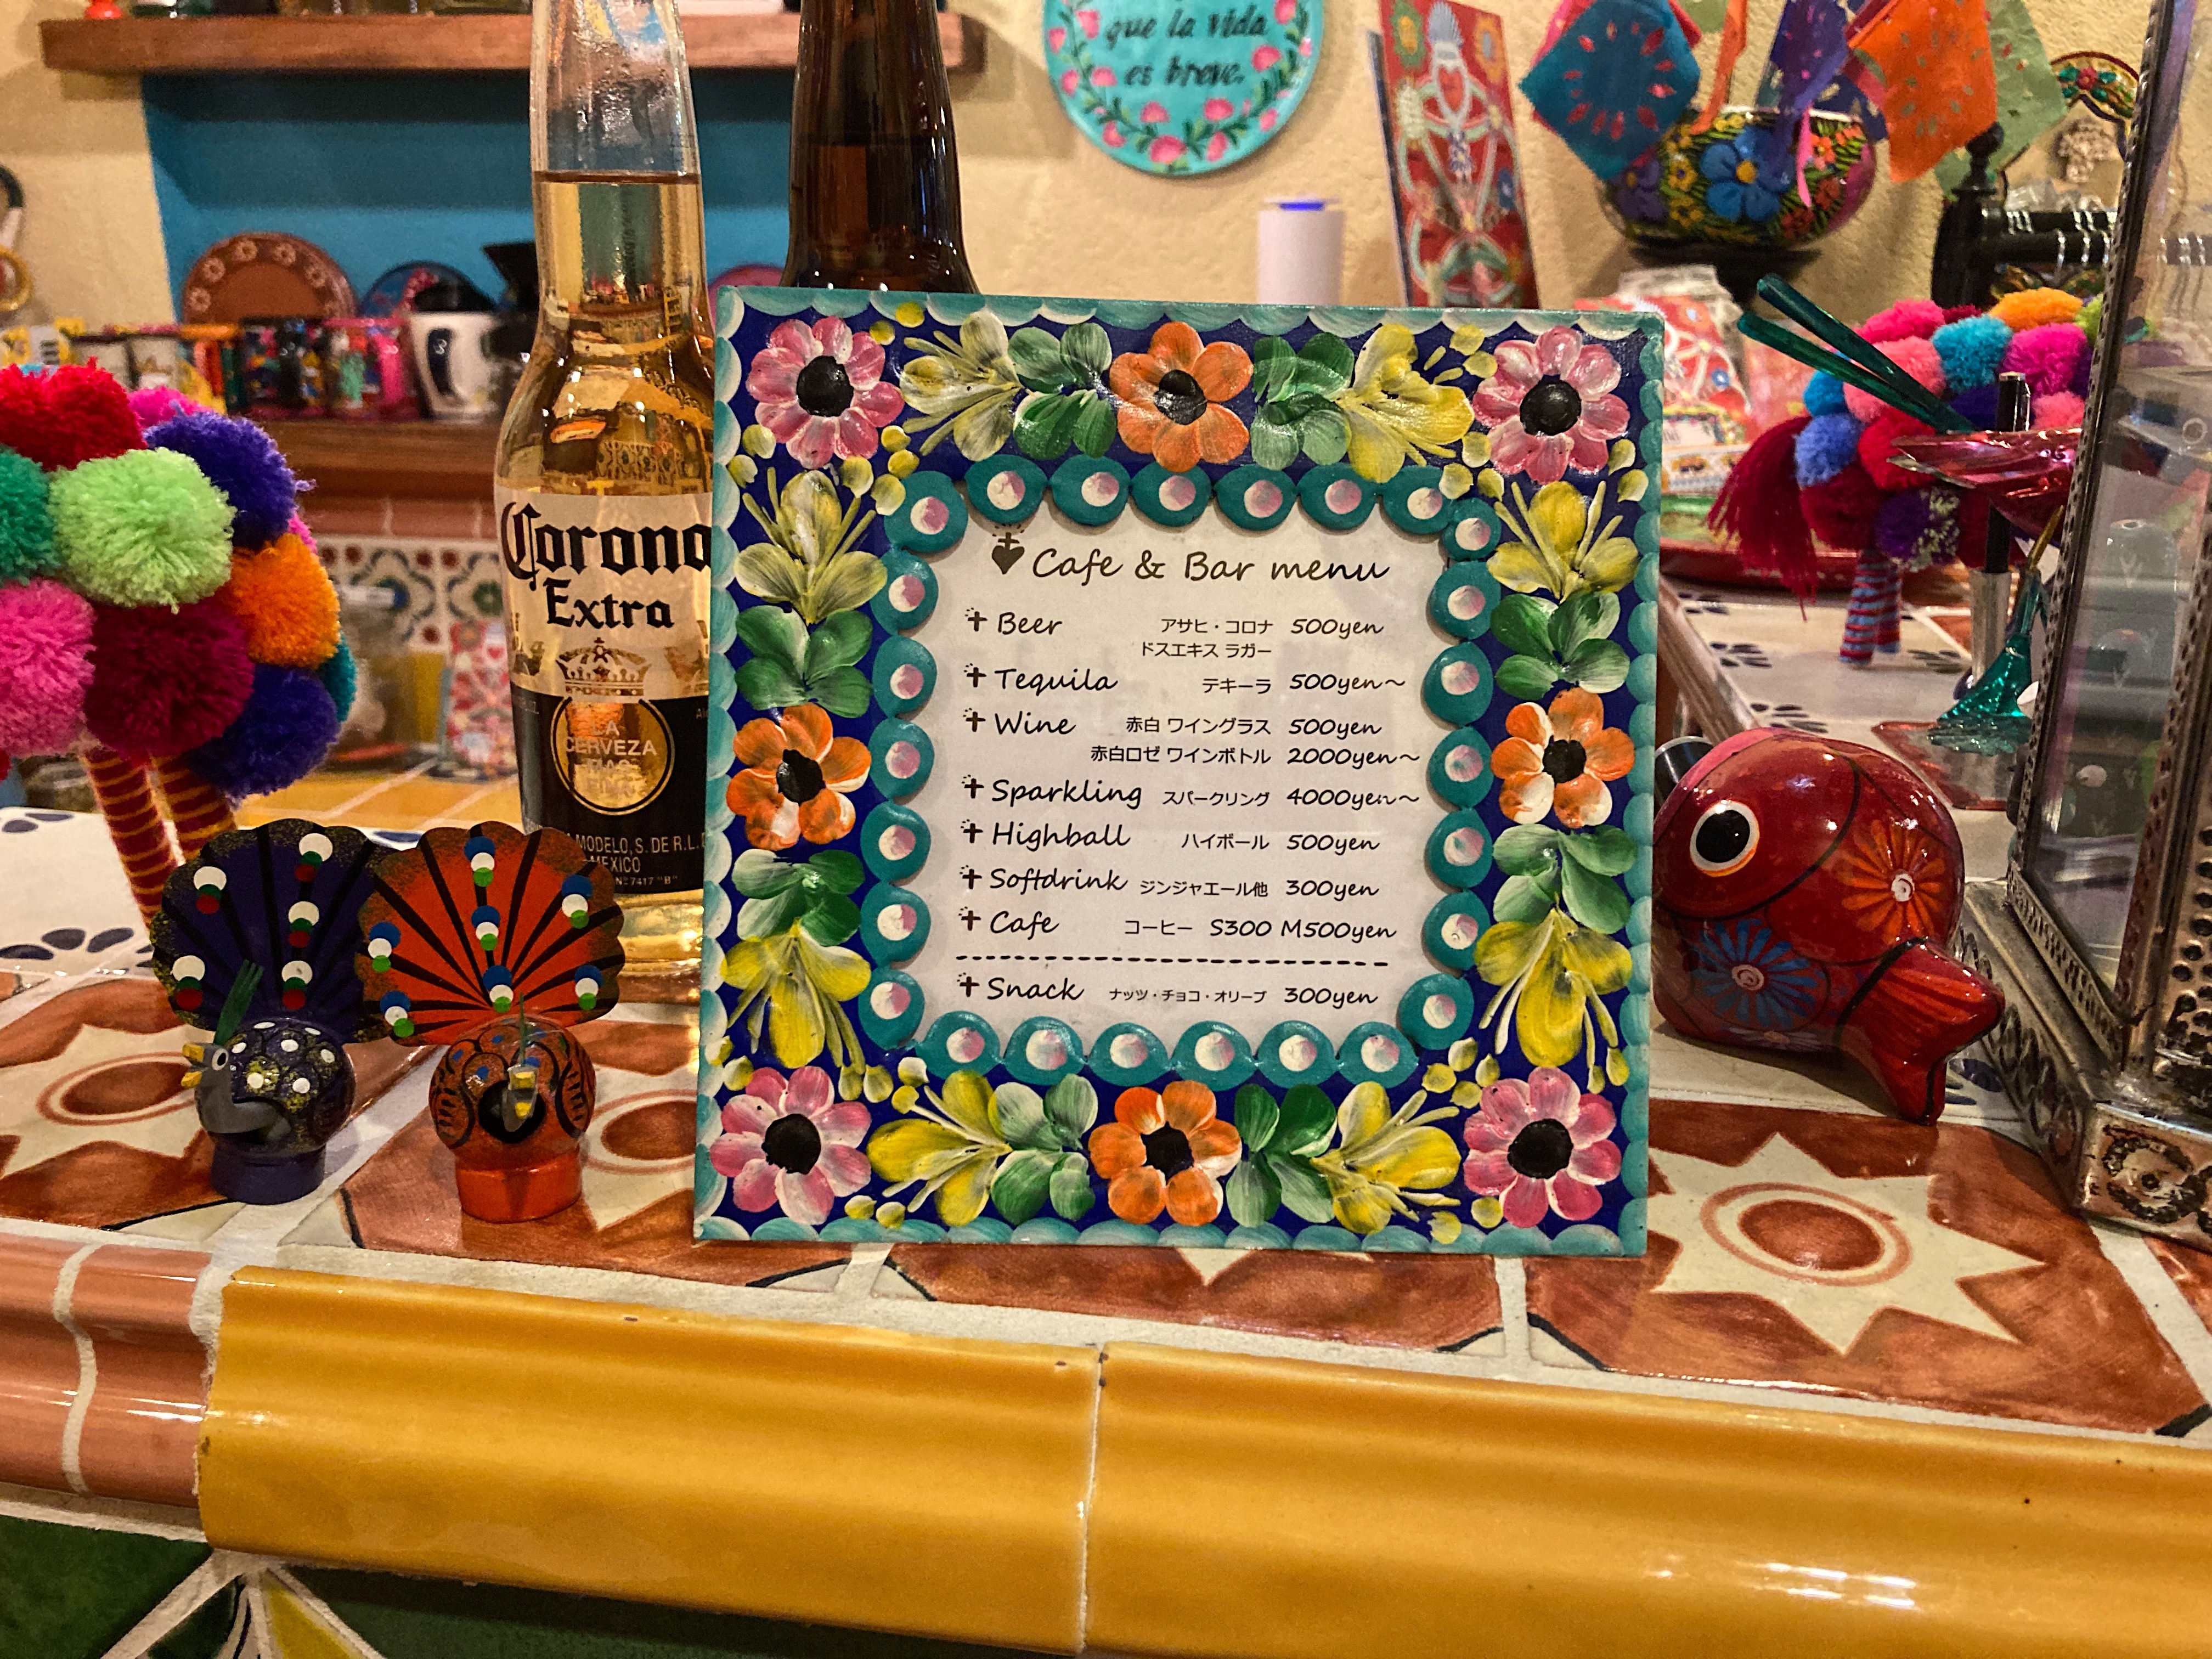 que la vida
es breve.
Corona
Extra
LA
CERVEZA
MAS
FINA
MODELO, S. DE R.L.
MEXICO
Cafe & Bar menu
Beer アサヒ・コロナ 500yen
ドスエキス ラガー
Tequila テキーラ 500yen〜
Wine 赤白 ワイングラス 500yen
赤白ロゼ ワインボトル 2000yen〜
Sparkling スパークリング 4000yen〜
Highball ハイボール 500yen
Softdrink ジンジャエール他 300yen
Cafe コーヒー S300 M500yen
Snack ナッツ・チョコ・オリーブ 300yen